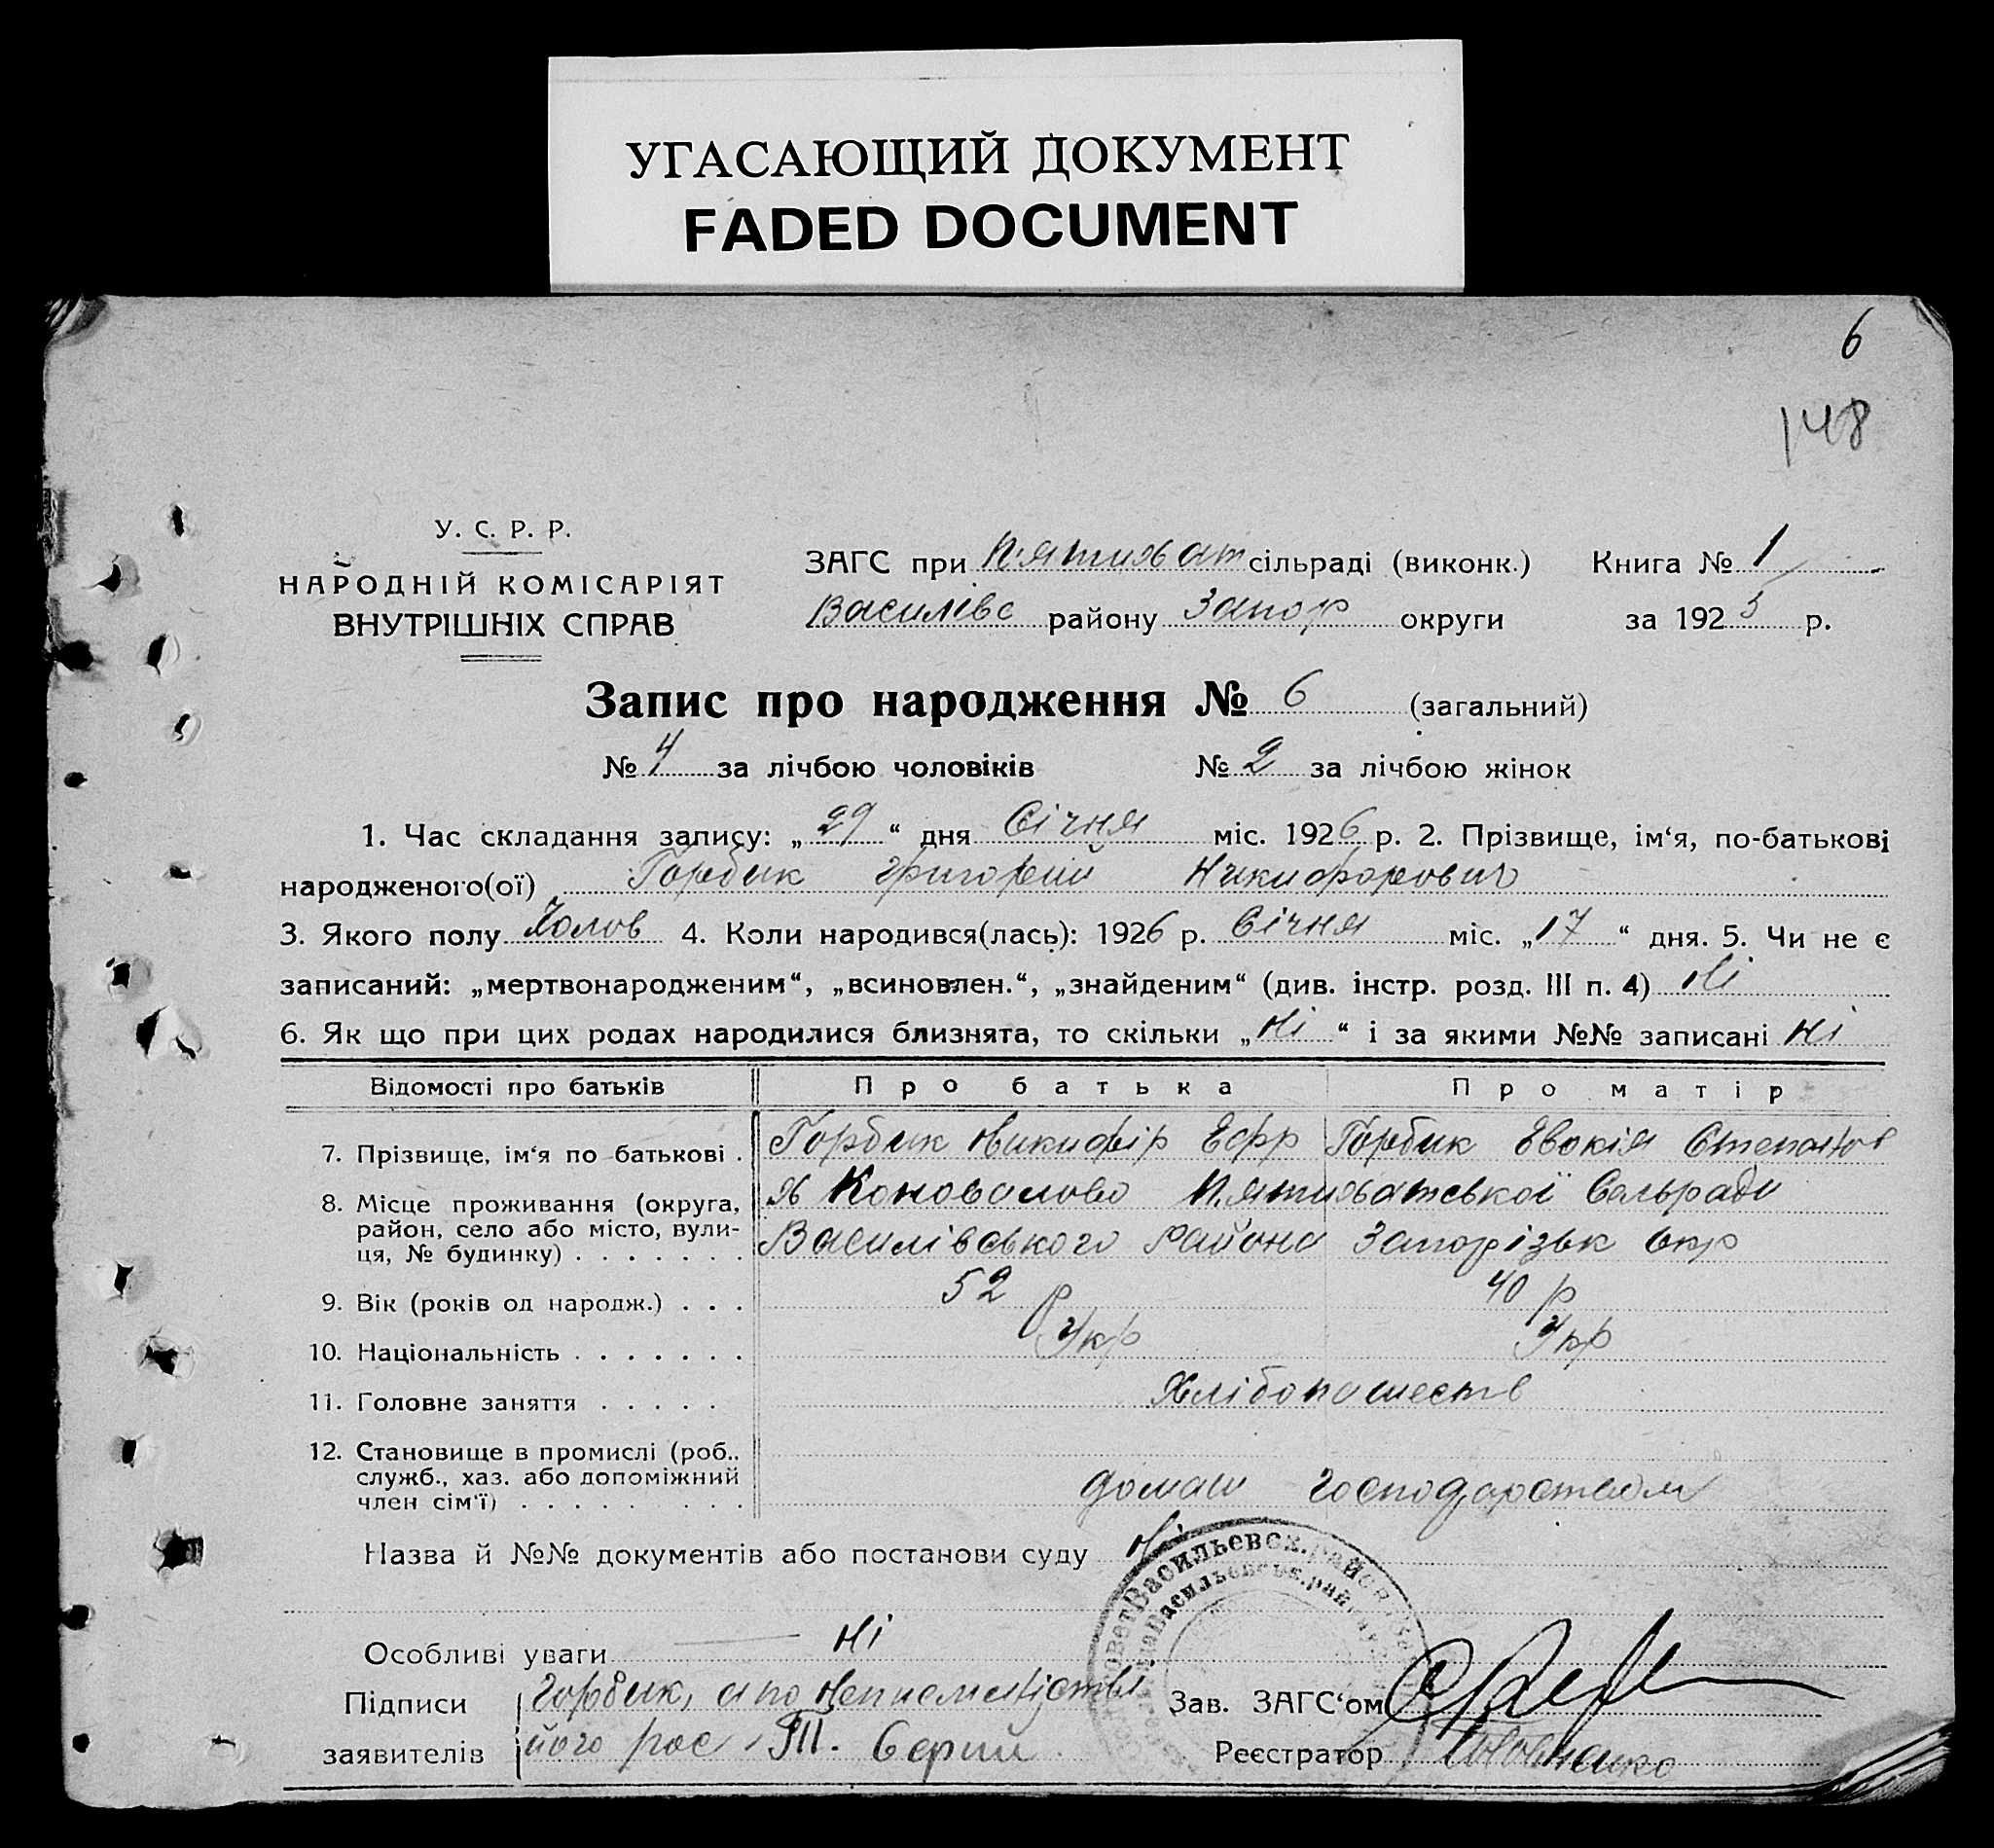 УГАСАЮЩИЙ ДОКУМЕНТ
FADED DOCUMENT
6
148
У. С. Р. Р.
НАРОДНІЙ КОМІСАРІЯТ
ВНУТРІШНІХ СПРАВ
ЗАГС при П'ятихат сільраді (виконк.) Книга № 1
Василівс району Запор округи за 1925 р.
Запис про народження № 6 (загальний)
№ 4 за лічбою чоловіків № 2 за лічбою жінок
1. Час складання запису: „29“ дня Січня міс. 1926 р. 2. Прізвище, ім‘я, по-батькові
народженого(ої) Горбик Григорий Никифорович
3. Якого полу Чолов 4. Коли народився(лась): 1926 р. Січня міс. „17“ дня. 5. Чи не є
записаний: „мертвонародженим“, „всиновлен.“, „знайденим“ (див. інстр. розд. III п. 4) Ні
6. Як що при цих родах народилися близнята, то скільки „Ні“ і за якими №№ записані Ні
Відомості про батьків Про батька Про матір
7. Прізвище, ім‘я по батькові . Горбик Никифір Ефр Горбик Евокія Степанов
8. Місце проживання (округа, х Коновалово П'ятихатської Сальради
район, село або місто, вули- Василівського Района Запорізьк Окр
ця, № будинку) . . . . . . .
9. Вік (років од народж.) . . . 52 р 40 р
10. Національність . . . . . . . Укр Укр
11. Головне заняття . . . . . Хлібопашеств
12. Становище в промислі (роб..
служб., хаз. або допоміжний домаш господарством
член сім‘ї) . . . . . . . . .
Назва й №№ документів або постанови суду Ні
Васильевск. район
Васильевськ. рай
Особливі уваги Ні
Підписи Горбик, а по Неписменности Зав. ЗАГС‘ом
заявителів його рос. Реєстратор